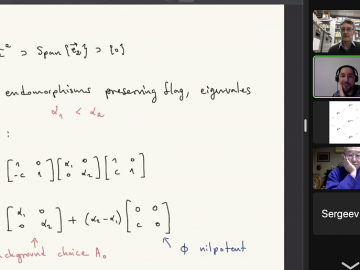 ℂ² ⊃ Span {e⃗₂} ⊃ {0}
endomorphisms preserving flag, eigenvalues
α₁ < α₂
:
[1 0; -c 1] [α₁ 0; 0 α₂] [1 0; c 1]
[α₁ 0; 0 α₂] + (α₂-α₁) [0 0; c 0]
background choice A₀ ϕ nilpotent
Sergeev